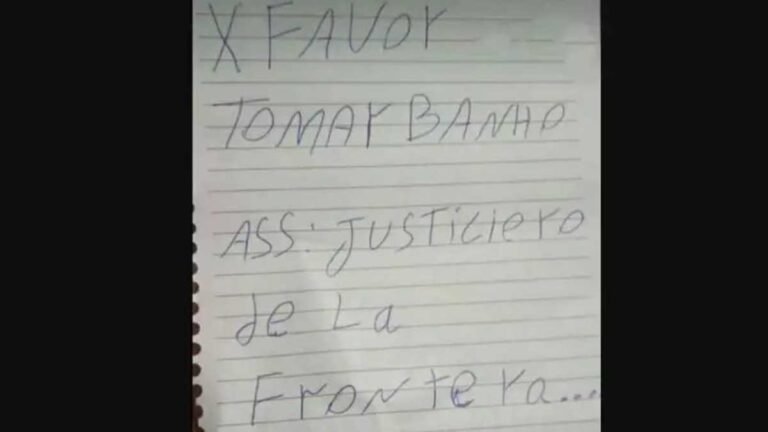 X FAVOr
TOMAr BANHO
ASS: JUSTICIero
de La
Frontera...